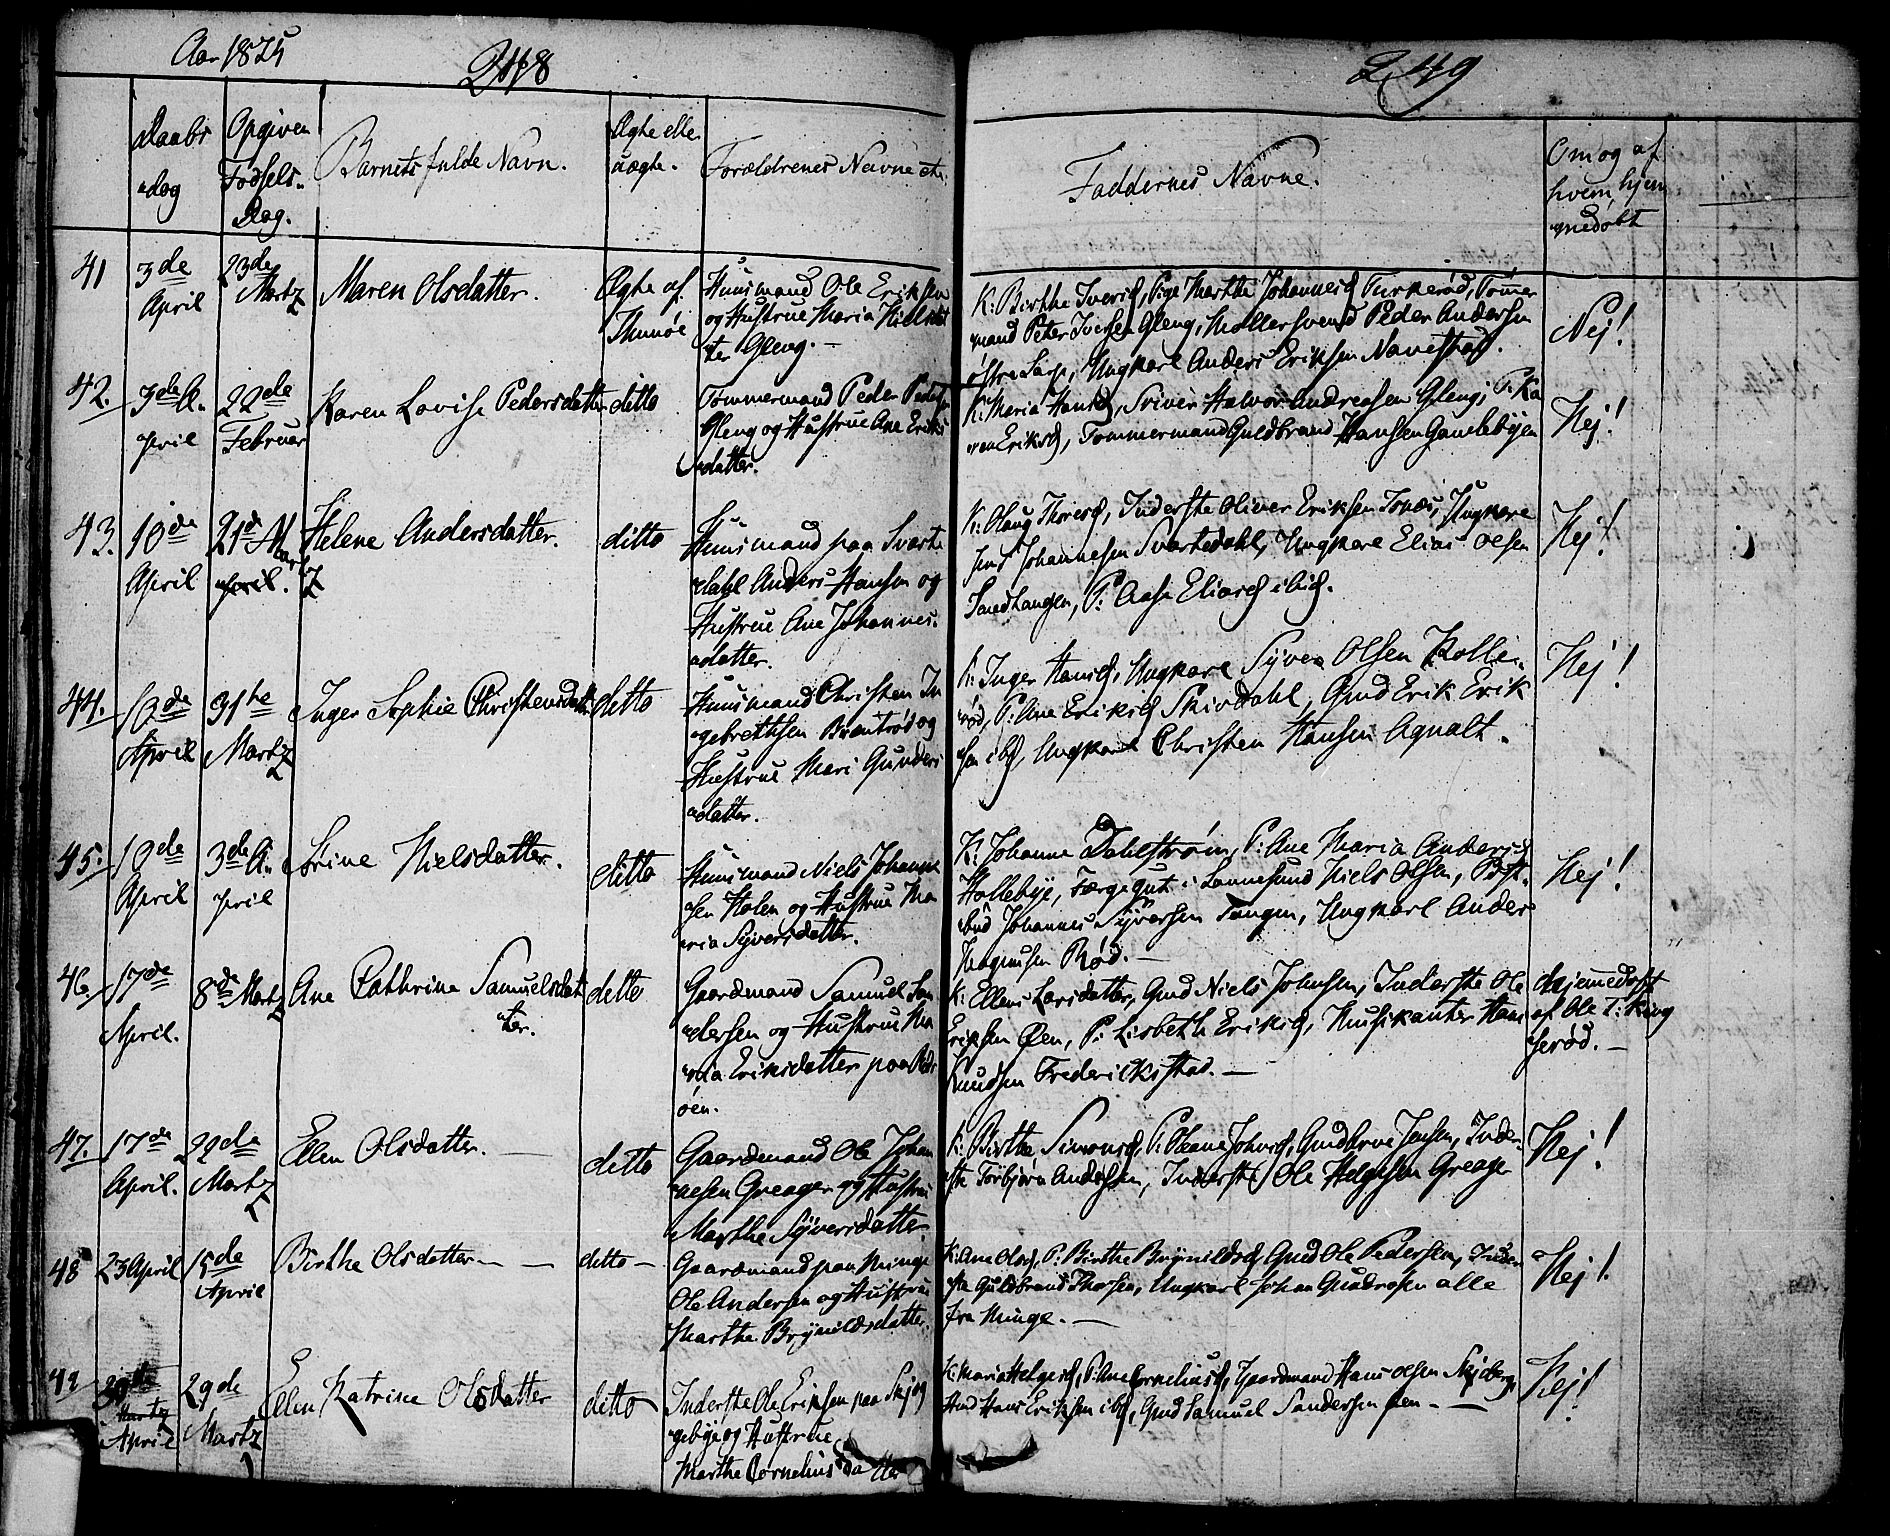 Aar 1825
248
249
Daabs
dag
Opgiven
Fødsels-
Dag.
Barnets fulde Navn.
Ægte eller
uægte.
Forældrenes Navne etc.
Faddernes Navne.
Om og af
hvem hjem
medøbt
41
3de
April
23de
Martz
Maren Olsdatter.
Ægte af
Thunøe
Huusmand Ole Eriksen
og Hustrue Maria Nielsdat
ter Gleng. -
K: Birthe Iversd, Pige Marthe Johannesd Turkerød, Tømer
mand Peter Iversen Gleng, Møllersvend Peder Andersen
østre Sarp, Ungkarl Anders Eriksen Navestad.
Nej!
42.
3de A-
pril
22de
Februar
Karen Lovise Pedersdatter
ditto
Tømmermand Peder Peders
Gleng og Hustrue Ane Eriks
datter.
K: Maria Hansd, Halvor Andreasen Gleng, P: Ka
ren Eriksd, Tømmermand Guldbrand Hansen Gamlebyen
Nej!
43.
10de
April
21de Mar
April.
tz
Helene Andersdatter.
ditto
Huusmand paa Svarte
dahl Anders Hansen og
Hustrue Ane Johannes-
datter.
K: Olaug Thoresd, Inderste Oliver Eriksen Ungkarl
Jens Johannesen Svartedahl, Ungkarl Elias Olsen
Sandtangen, P: Aase Eliasd ibid.
Nej!
44.
10de
April
31te
Martz
Inger Sophie Christensdatter
ditto
Huusmand Christen In
gebrethsen og
Hustrue Mari Gunders
datter.
K: Inger Hansd, Ungkarl Syver Olsen Kolle-
rød, P: Ane Eriksd Skivdahl, Gmd Erik Erik
sen ibd, Ungkarl Christen Hansen Agnalt.
Nej!
45.
10de
April
3de A-
pril
Stine Nielsdatter.
ditto
Huusmand Niels Johanne
sen Holen og Hustrue Ma
ria Syversdatter.
K: Johanne Dahlstrøm, P: Ane Maria Andersd
Hollebye, Færgegut i Sannesund Niels Olsen, Post-
bud Johannes Syversen Tangen, Ungkarl Anders
Magnusen Rød. -
Nej!
46
17de
April.
8de Martz
Ane Cathrine Samuelsdat
ter.
ditto
Gaardmand Samuel San
dersen og Hustrue Ma
ria Eriksdatter paa
øen.
K: Ellen Larsdatter, Gmd Niels Johnsen, Inderste Ole
Eriksen Øen, P: Lisbeth Eriksd, Musikanter Hans
Knudsen Frederikstad. -
Hjemmedøbt
af Ole T: Ring
serød. -
47.
17de
April.
22de
Martz
Ellen Olsdatter. -
ditto
Gaardmand Ole Johan
nesen Greager og Hustrue
Marthe Syversdatter
K: Birthe Simonsd, P: Oleane Johnsd, Gmd Arve Jensen, Inder-
ste Torbjørn Andersen, Inderste Ole Helgesen Greager
Nej!
48
23 April
15de
April
Birthe Olsdatter - -
ditto -
Gaardmand paa Minge
Ole Andersen og Hustrue
Marthe Brynildsdatter
K: Ane Olsd, P: Birthe Brynildsd, Gmd Ole Pedersen, Inder
ste Guldbrand Thorsen, Ungkarl Johan Gundrosen alle
fra Minge. -
Nej!
49
Martz
April
29de
Martz
Ellen Katrine Olsdatter
ditto
Inderste Ole Eriksen paa Skjeg
gebye og Hustrue
Marthe Cornelius datter
K: Maria Helgesd, P: Ane Cornelius, Gaardmand Hans Olsen Skjeberg,
Hans Eriksen ibd, Gmd Samuel Sandersen Øen - -
Nej!